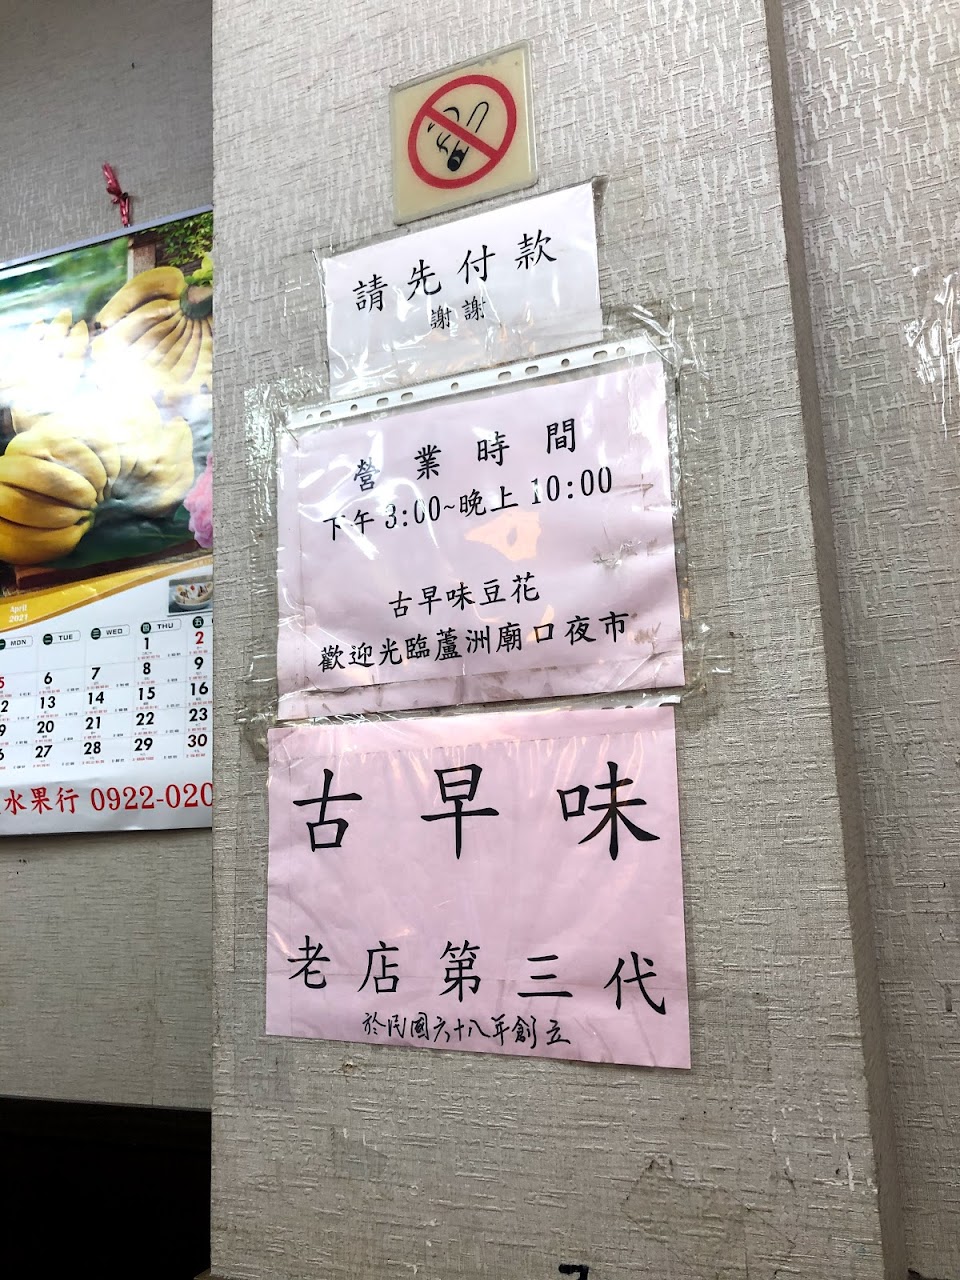 請先付款
謝謝
營業時間
下午 3:00~晚上 10:00
古早味豆花
歡迎光臨蘆洲廟口夜市
古早味
老店第三代
於民國六十八年創立
April
2021
一 MON 二 TUE 三 WED 四 THU 五
1 2
5 6 7 8 9
2 13 14 15 16
9 20 21 22 23
6 27 28 29 30
水果行 0922-020